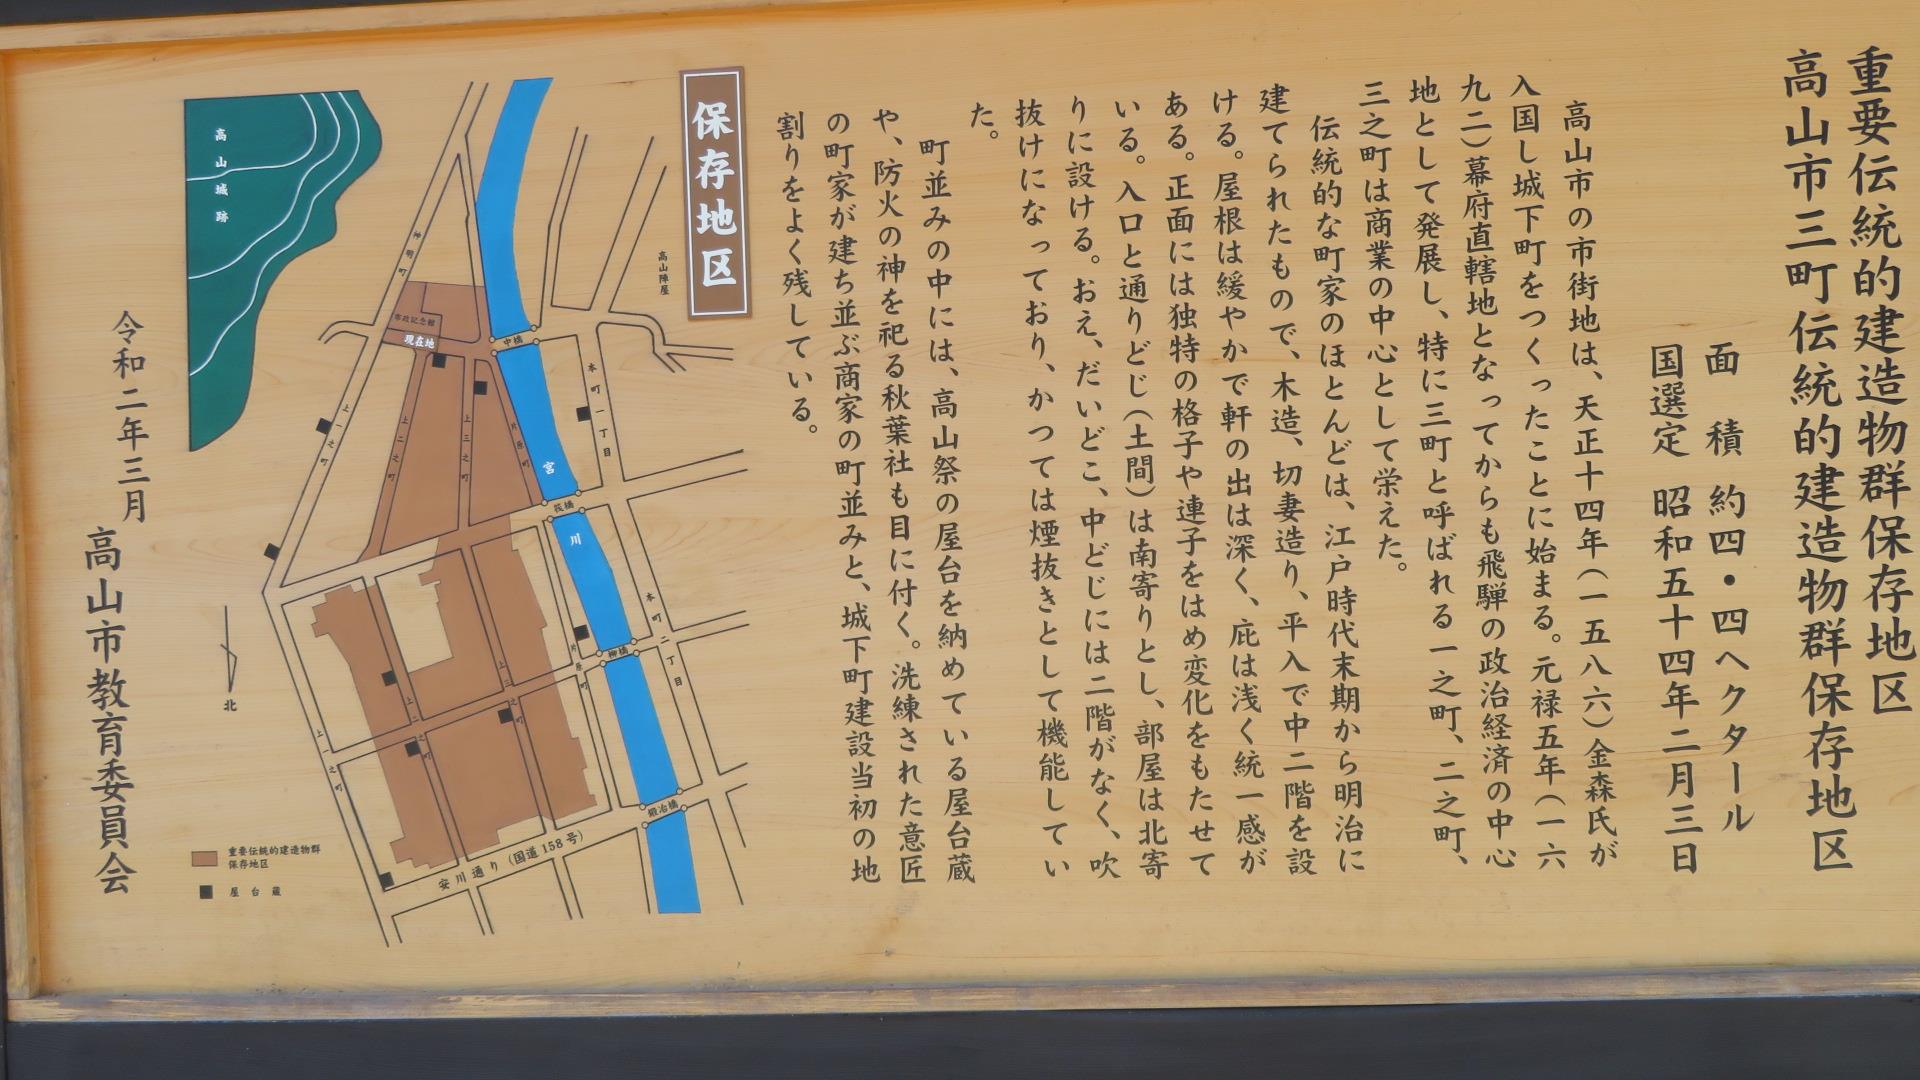 重要伝統的建造物群保存地区
高山市三町伝統的建造物群保存地区
面　積　約四・四ヘクタール
国選定　昭和五十四年二月三日
高山市の市街地は、天正十四年（一五八六）金森氏が
入国し城下町をつくったことに始まる。元禄五年（一六
九二）幕府直轄地となってからも飛騨の政治経済の中心
地として発展し、特に三町と呼ばれる一之町、二之町、
三之町は商業の中心として栄えた。
伝統的な町家のほとんどは、江戸時代末期から明治に
建てられたもので、木造、切妻造り、平入で中二階を設
ける。屋根は緩やかで軒の出は深く、庇は浅く統一感が
ある。正面には独特の格子や連子をはめ変化をもたせて
いる。入口と通りどじ（土間）は南寄りとし、部屋は北寄
りに設ける。おえ、だいどこ、中どじには二階がなく、吹
抜けになっており、かつては煙抜きとして機能してい
た。
町並みの中には、高山祭の屋台を納めている屋台蔵
や、防火の神を祀る秋葉社も目に付く。洗練された意匠
の町家が建ち並ぶ商家の町並みと、城下町建設当初の地
割りをよく残している。
保存地区
高山陣屋
高山城跡
神明町
市政記念館
現在地
中橋
本町一丁目
上一之町
上二之町
上三之町
片原町
宮
川
筏橋
本町二丁目
柳橋
片原町
上三之町
上二之町
上一之町
鍛冶橋
安川通り（国道158号）
北
重要伝統的建造物群
保存地区
屋台蔵
令和二年三月
高山市教育委員会